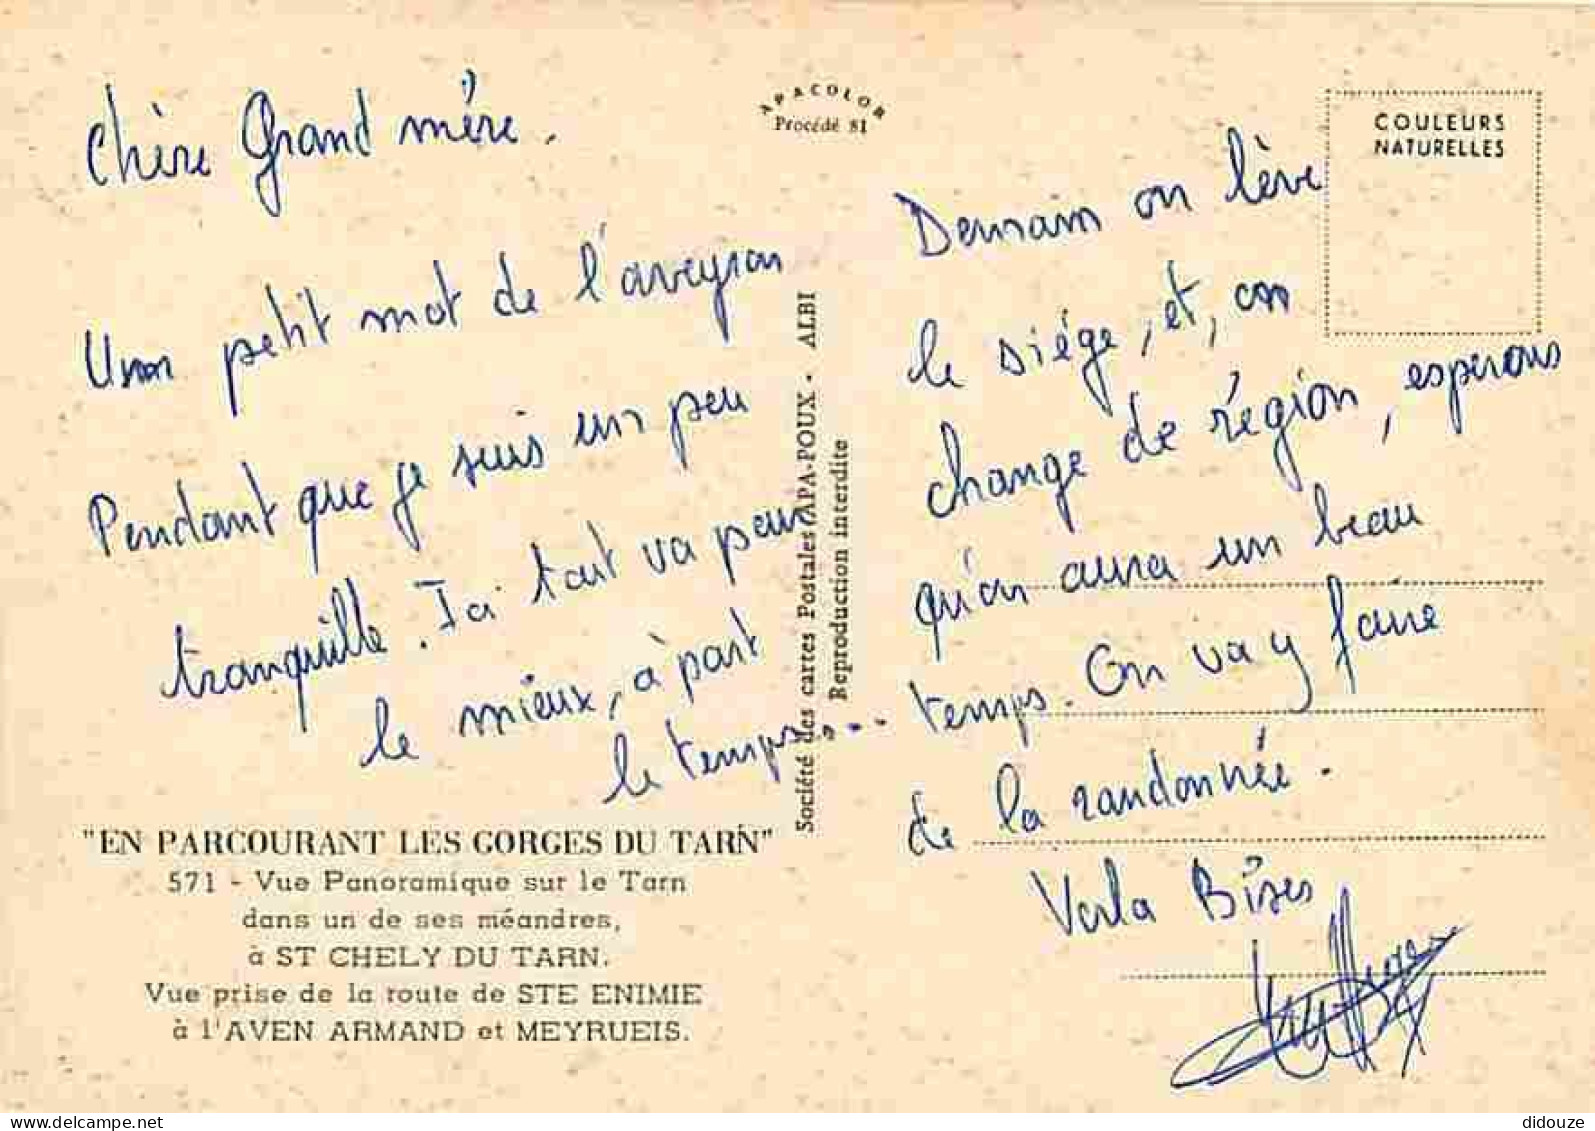 Chère Grand mère.
Un petit mot de l'aveyron
Pendant que je suis un peu
tranquille. Ici tout va pour
le mieux, à part
le temps...
"EN PARCOURANT LES GORGES DU TARN"
571 - Vue Panoramique sur le Tarn
dans un de ses méandres,
à ST CHELY DU TARN.
Vue prise de la route de STE ENIMIE
à l'AVEN ARMAND et MEYRUEIS.
APACOLOR
Procédé 81
Société des cartes Postales APA-POUX - ALBI
Reproduction interdite
COULEURS
NATURELLES
Demain on lève
le siége, et, on
change de région, esperons
qu'on aura un beau
temps. On va y faire
de la randonnée.
Voila Bises
didouze